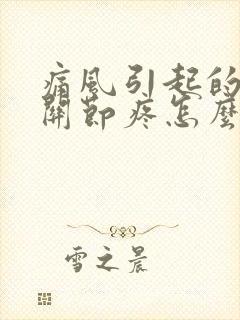 痛風引起的
關節疼怎麼
雪之晨